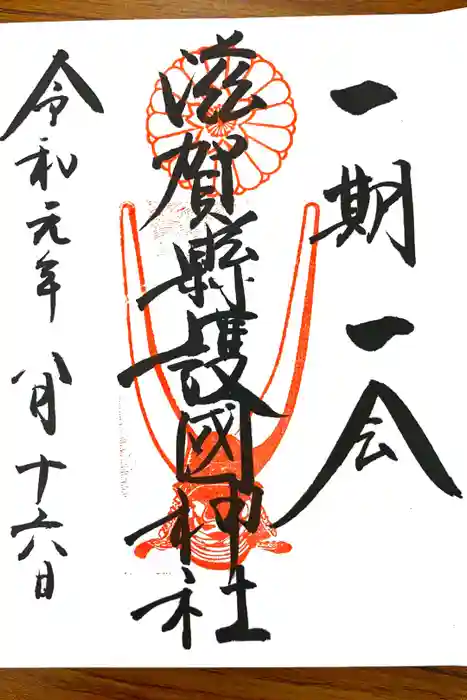 一期一会
滋賀縣護國神社
令和元年八月十六日